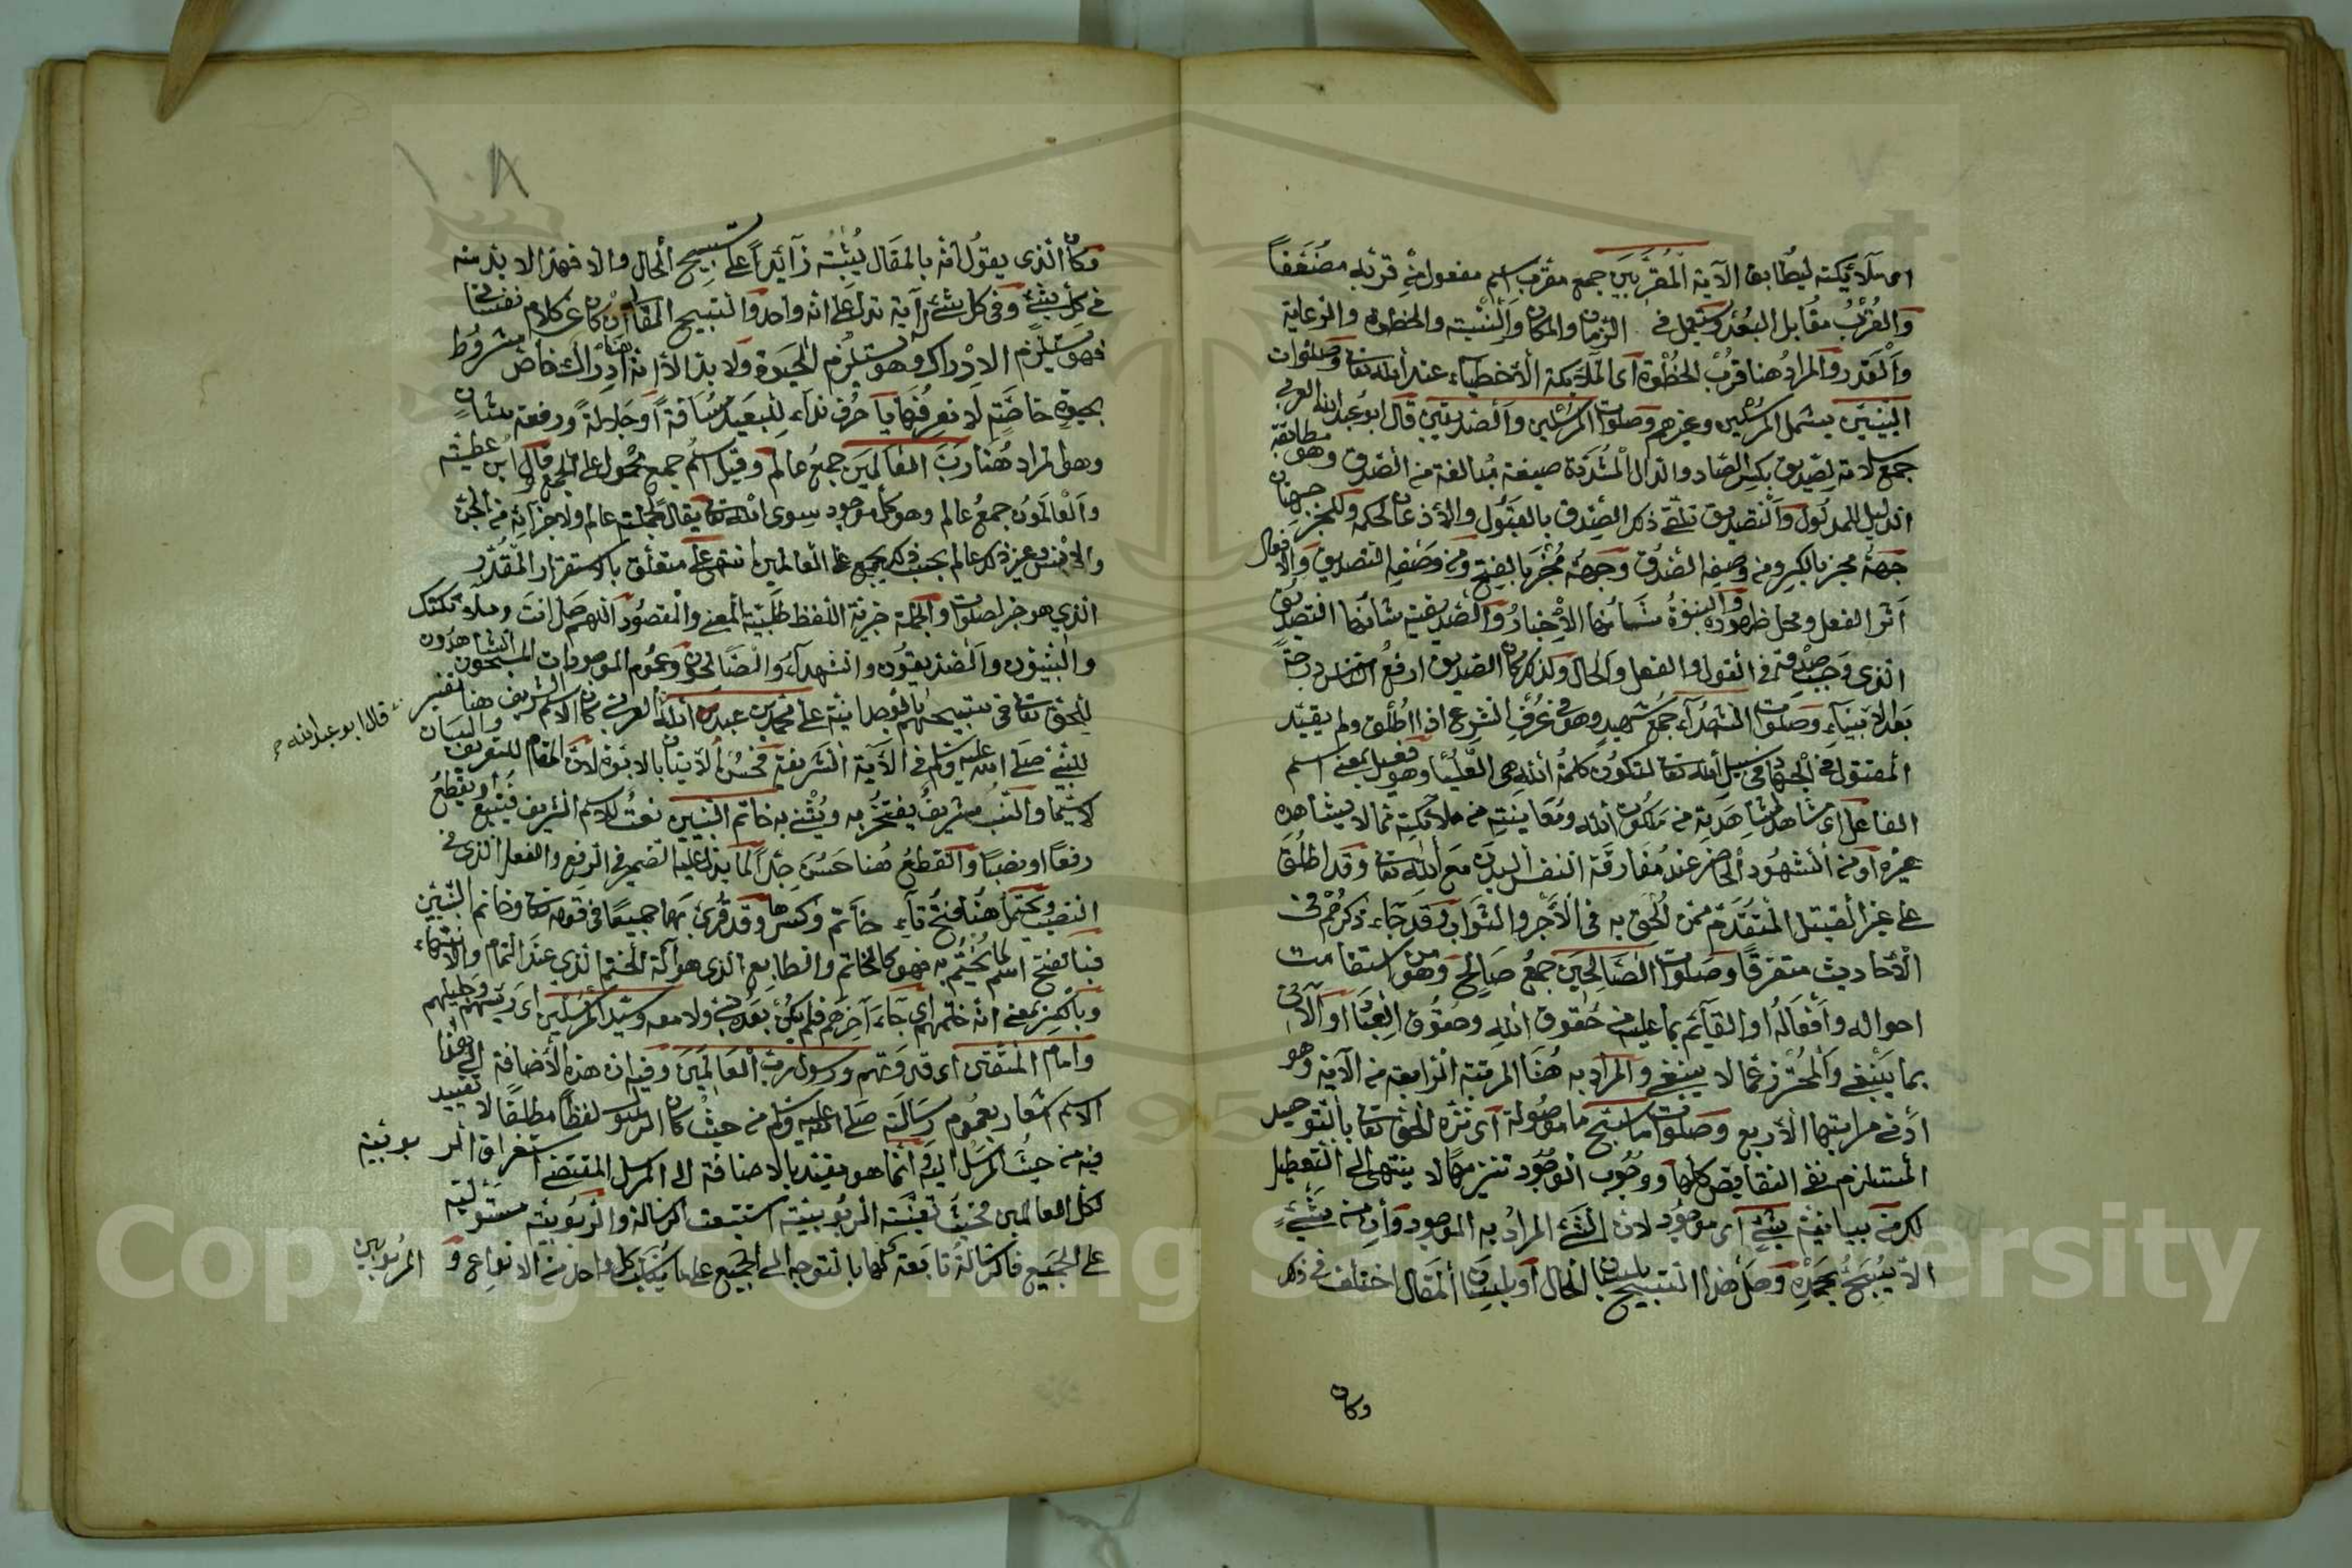 اى ملآئكته ليُطابق الآية المُقرَّبين جمع مقرب اسم مفعول من قربه مضعّفاً
والقُرْبُ مقُابل البُعْد ويستعمل فى الزمان والمكان والنِّسْبة والحظوة والرعاية
والقُدْرة والمرادُ هنا قربُ الحُظْوة اى الملآئكة الأحظياء عند الله تعالى وصلوات
النبيّين يشمل المرسلين وغيرهم وصلوات المرسلين والصديقين قال ابو عبد الله العربى
جمع سلامة لصِدّيق بكسر الصّاد والدال المُشدّدة صيغة مُبالغة من الصدق وهو مطابقة
الدليل للمدلُول والتصديق تلقّى ذكر الصِدْق بالقبُول والأذعان لحكمه وللخبر جهتان
جهةُ مخبِر بالكسر ومنه وصفه الصدق وجهة مُخبَر بالفتح ومن وصفه التصديق والافعال
أثر الفعل ومحل ظهوره والنبوّةُ شأنها الاِخبارُ والصّديقية شأنها التصديق
الذى وجب صدقه فى القول والفعل والحال ولذلك كان الصديق ارفعُ الناس درجةً
بعد الانبيآء وصلوات الشهدآء جمع شهيد وهو فى عُرْف الشرع اذا اُطْلق ولم يقيّد
المقتول فى الجهاد فى سبيل الله تعالى لتكون كلمةُ الله هى العُلْيا وهو فعيل بمعنى اسم
الفاعل اى شاهد لمشاهدته من ملكوت الله ومُعاينته من ملآئكته ما لا يشاهده
غيره او من الشهُود الحاضر عند مُفارقة النفس البدن مع الله تعالى وقد اطْلق
على غير القتيل المتقدّم ممّن اُلحق به فى الأجْر والثواب وقد جآء ذكرهُم فى
الأحاديث متفرقًا وصلوات الصّالحين جمعُ صَالح وهو من استقامت
احواله وأفعاله او القآئم بما عليه من حقوق الله وحقوق العِباد او الآتى
بما ينْبغى والمُحْترز عمّا لا ينبغى والمراد به هُنا المرتبة الرابعة من الآية وهو
أدْنى مراتبها الأربع وصلوات ما سبّح ما موصُولة اى نزّه الحق تعالى بالتوحيد
المستلزم نفى النقآيص كلها ووجُوب الوجُود تنزيهًا لا ينتهى الى التعطيل
لك من بيانية شئ اى موجُود لان الشئ المرادُ به الموجود وأن من شئٍ
الاّ يُسبّحُ بحَمْده وهَل هذا التسبيح بلسان الحال او بلسان المقال اختلف فى ذلك
وكان
١٠٨
وكان الذى يقُول انّه بالمقال يُثبْته زآئداً على تسبيح الحال والا فهذا لا بد منه
فى كل شئ وفى كل شئ له آية تدل على انه واحد والتسبيح المقالى ان كان عن كلام نفسانى
فهو يستلزم الادراك وهو يستلزم الحيوة ولا بد الا انه ادراك خاص مشروط
بحيوة خاصّةٍ لا نعرفها يا حرف ندآء للبعيد مسافةً او جلالةً ورفعة شان
وهو المراد هُنا ربّ العالمين جمعُ عالم وقيل اسمُ جمع محمُول على الجمع قال ابن عطيّة
والعالمُون جمعُ عالم وهو كل موجود سوى الله تعالى يقال لجملته عالم ولاجزآئه من الجن
والانس وغيرذلك عالم بحسب ذلك يجمع على العالمين انتهى على متعلق بالاستقرار المقدّر
الذى هو خبر صلوات والجملة خبرية اللفظ طلبيّة المعنى والمقصُود اللهم صل انت وملآئكتك
والنبيّون والصّديقُون والشهدآء والصّالحون وعمُوم الموجودات المسبّحون الشّاهدون
للحق تعالى فى تسبيحهم بالوحدانية على محمد بن عبد الله قال ابو عبد الله العربى كان الاسم الشريف هنا تفسير
للنبى صلى الله عليه وسلم فى الآية الشريفة فحسُن الاتيان بالابوّة لان المقام للتعريف والبيان
لا سيّما والنّسب شريفُ يفتخرُ به ويُثنى به خاتم النبيين نعتُ للاسم الشريف فيتبع او يقطعُ
رفعًا او نصبًا والقطعُ هُنا حَسُن جدّاً لما يدل عليه الضمير فى الرفع والفعل الذى فى
النصب ويحتملُ هُنا فتح تآء خاتم وكسرها وقد قُرئ بهما جميعًا فى قوله تعالى وخاتم النبيين
فبالفتح اسم لما يُختم به فهو كالخاتم والطابع الذى هو آلة الختم الذى عند التمام والانتهآء
وبالكسر بمعنى انه ختمهم اى جآء آخرهم فلم يكن بعْده نبى ولا معه وسيّد المرسلين اى رئيسهم وجليلهم
وامام المتّقين اى قدوتهم ورسول ربّ العالمين وفيه ان هذه الأضافة الى هذا
الاسم اشعار بعمُوم رسالته صلى الله عليه وسلم من حيث كان المرسل لفظاً مطلقًا لا تقييد
فيه من حيث المرْسَل اليه وانما هو يقيد بالاضافة الى المرسل المقتضى استغراق المربوبية
لكل العالمين فحيث تعيّنت المربُوبيّة استتبعت الرسالة والرّبوبيّة مستولية
على الجميع فالرّسالة تابعة لها بالتوجه الى الجميع على ما يُناسب كل واحد من الانواع و المربُوبين
قال ابو عبد الله